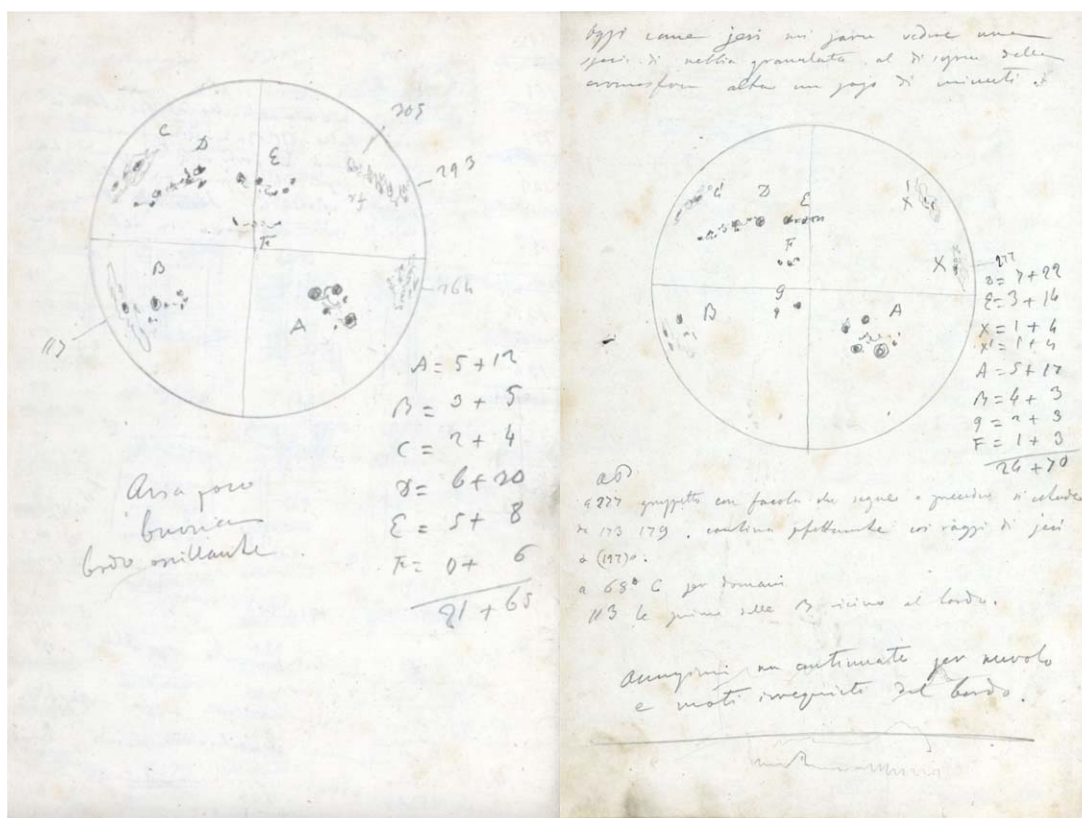 C
D
E
305
293
F
B
164
A
117
A = 5 + 12
B = 3 + 5
C = 2 + 4
D = 6 + 20
E = 5 + 8
F = 0 + 6
21 + 65
Aria poco
buona
bordo oscillante
Oggi come jeri mi parve vedere una
specie di nebbia granulata al di sopra della
cromosfera alta un pajo di minuti
C
D
E
X
F
X
g
B
A
D = 7 + 22
E = 3 + 16
X = 1 + 4
X' = 1 + 4
A = 5 + 17
B = 4 + 3
g = 2 + 3
F = 1 + 3
24 + 70
a 277 gruppetto con facola che segue e precede
173 179 . continua coi raggi di jeri
a (197)
a 68 per domani
113 le prime della B vicino al bordo.
continuate per nuvolo
e moti irrequieti del bordo.